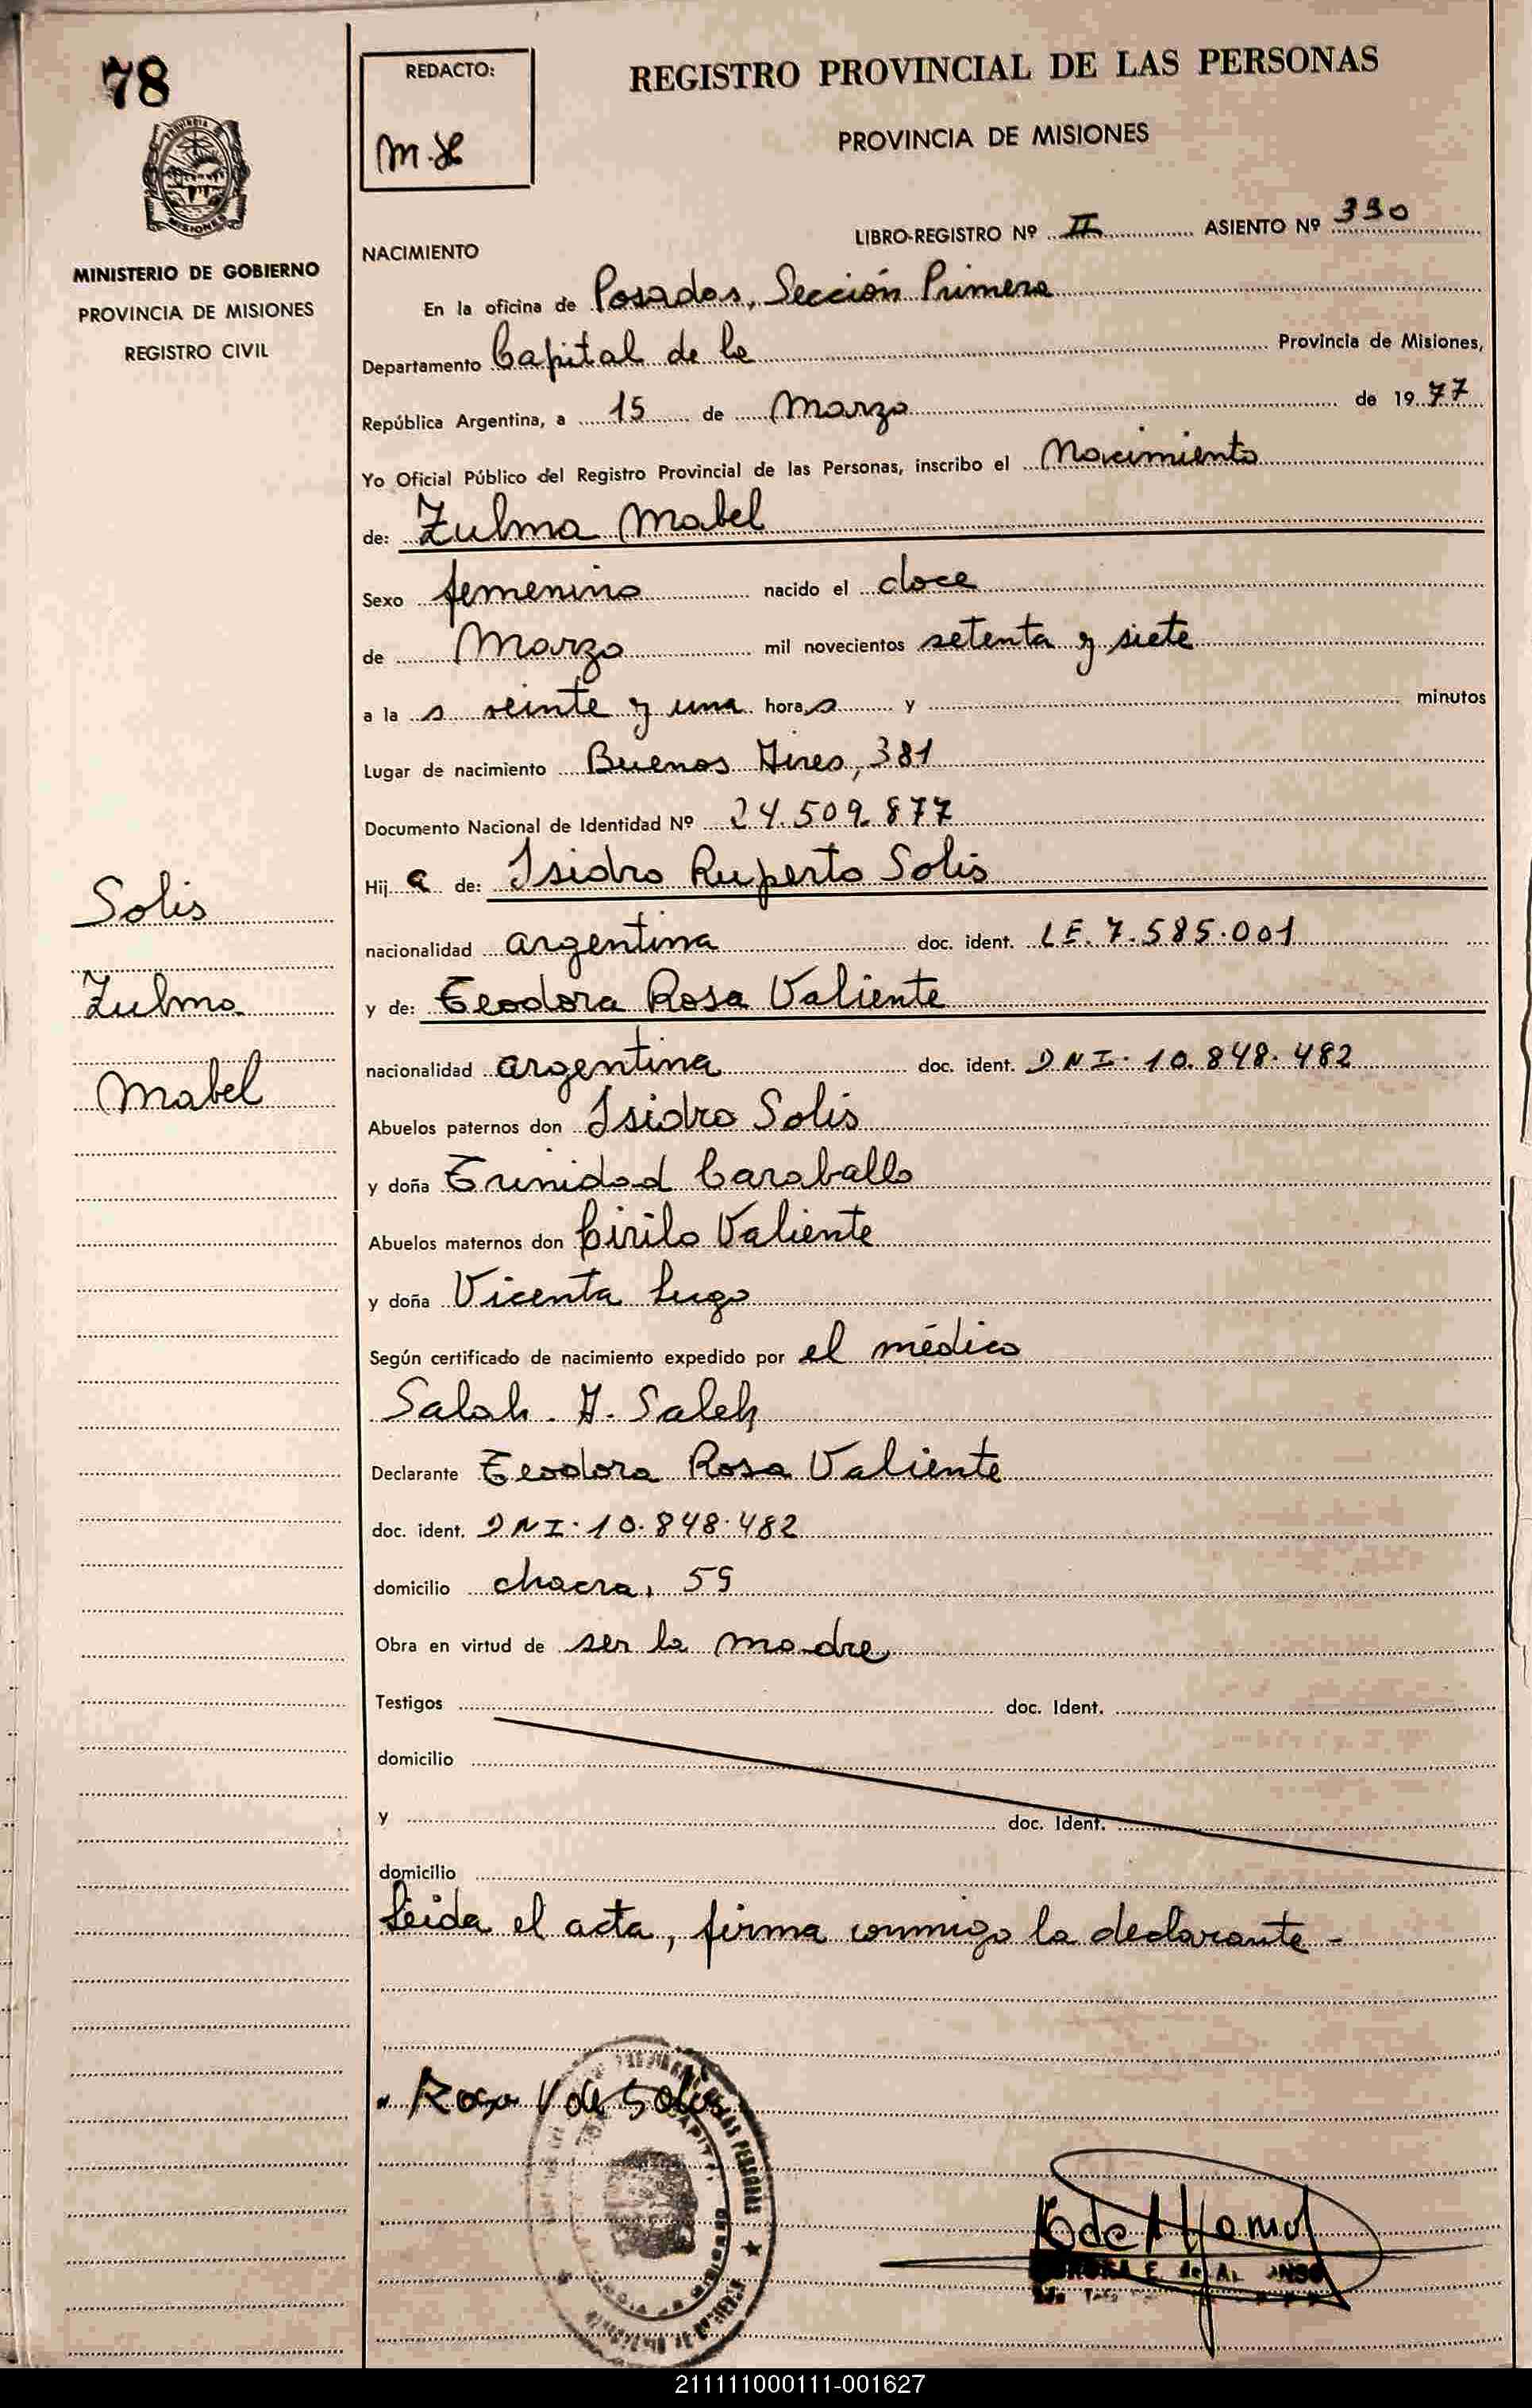 78
REDACTO:
REGISTRO PROVINCIAL DE LAS PERSONAS
m.
PROVINCIA DE MISIONES
MISIONES
LIBRO-REGISTRO Nº II ASIENTO Nº 330
NACIMIENTO
MINISTERIO DE GOBIERNO
PROVINCIA DE MISIONES
REGISTRO CIVIL
En la oficina de Posadas, Sección Primera
Departamento Capital de la Provincia de Misiones,
República Argentina, a 15 de Marzo de 1977
Yo Oficial Público del Registro Provincial de las Personas, inscribo el Nacimiento
de: Zulma Mabel
Sexo femenino nacido el doce
de Marzo mil novecientos setenta y siete
a la s veinte y una horas y minutos
Lugar de nacimiento Buenos Aires, 381
Documento Nacional de Identidad Nº 24.509.877
Hija de: Isidro Ruperto Solis
Solis
nacionalidad argentina doc. ident. LE. 7.585.001
Zulma
y de: Teodora Rosa Valiente
nacionalidad argentina doc. ident. DNI. 10.848.482
Mabel
Abuelos paternos don Isidro Solis
y doña Trinidad Caraballo
Abuelos maternos don Cirilo Valiente
y doña Vicenta Lugo
Según certificado de nacimiento expedido por el médico
Salah. A. Saleh
Declarante Teodora Rosa Valiente
doc. ident. DNI. 10.848.482
domicilio chacra, 59
Obra en virtud de ser la madre
Testigos doc. Ident.
domicilio
y doc. Ident.
domicilio
Leida el acta, firma conmigo la declarante -
Rosa V de Solis
211111000111-001627